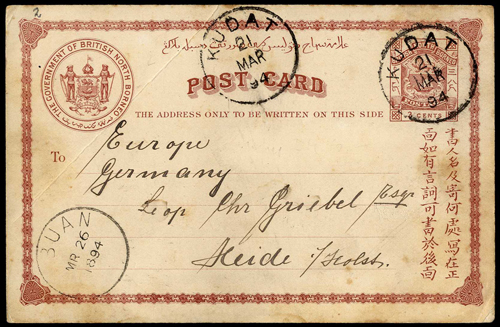 2
KUDAT
21
MAR
94
KUDAT
21
MAR
94
THE GOVERNMENT OF BRITISH NORTH BORNEO
POST CARD
3 CENTS
THE ADDRESS ONLY TO BE WRITTEN ON THIS SIDE
To
Europe
Germany
Leop Chr Griebel Esq
Heide i/Holst.
BUAN
MR 26
1894
書人名及寄何處寫在正
面如有言詞可書於後面